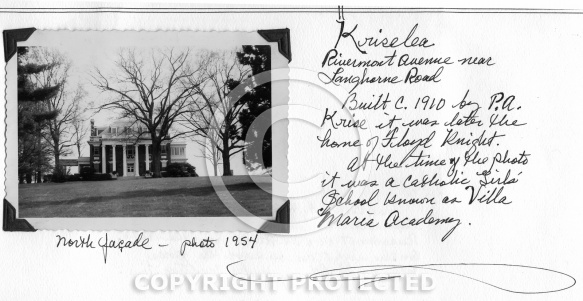 Kriselea
Rivermont Avenue near
Langhorne Road
Built C. 1910 by P.A.
Krise it was later the
home of Floyd Knight.
At the time of the photo
it was a Catholic Girls'
School known as Villa
Maria Academy.
North façade – photo 1954
COPYRIGHT PROTECTED